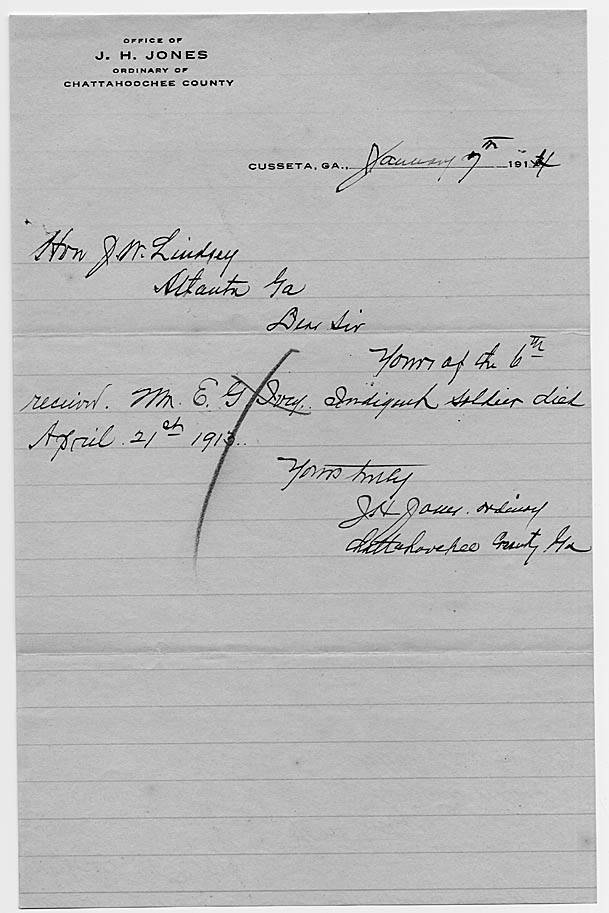 OFFICE OF
J. H. JONES
ORDINARY OF
CHATTAHOOCHEE COUNTY
CUSSETA, GA., January 7th 1914
Hon J. W. Lindsey
Atlanta Ga
Dear Sir
Yours of the 6th
received. Mr. E. G. Ivey. Indigent soldier died
April 21st 1913.
Yours truly
J H Jones. ordinary
Chattahoochee County Ga